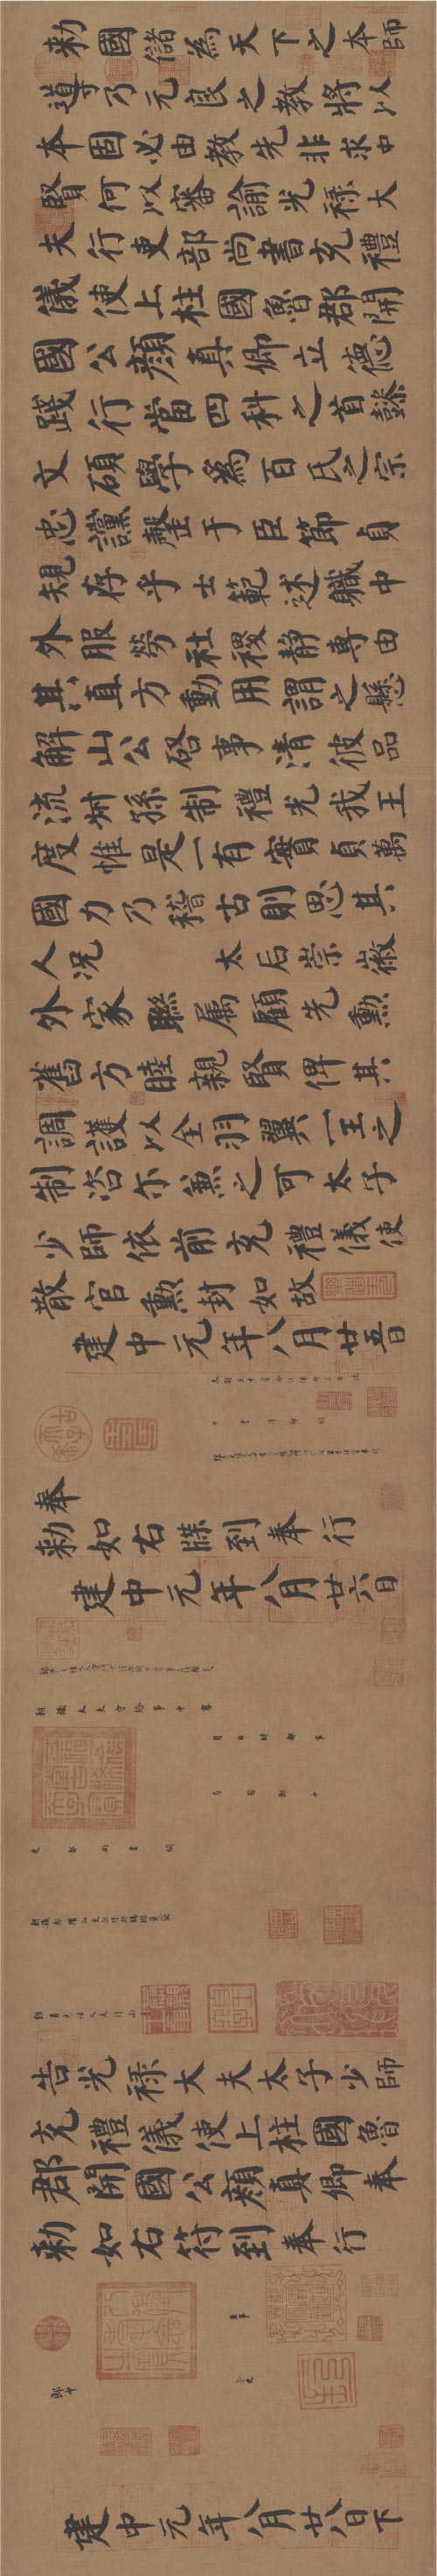 勅國儲為天下之本師
導乃元良之教將以
本固必由教先非求中
賢何以審諭光祿大
夫行吏部尚書充禮
儀使上柱國魯郡開
國公顏真卿立德
踐行當四科之首懿
文碩學為百氏之宗
忠讜罄于臣節貞
規存乎士範述職中
外服勞社稷靜專由
其直方動用謂之懸
解山公啓事清彼品
流叔孫制禮光我王
度惟是一有實貞萬
國力乃稽古則思其
人况 太后崇徽
外家聯属顧先勳
舊方睦親賢俾其
調護以全羽翼一王之
制咨尔兼之可太子
少師依前充禮儀使
散官勳封如故
建中元年八月廿五日
奉
勅如右牒到奉行
建中元年八月廿六日
月日時都事
左司郎中
吏部尚書闕
告光祿大夫太子少師
充禮儀使上柱國魯
郡開國公顏真卿奉
勅如右符到奉行
主事
郎中
令史
建中元年八月廿八日下